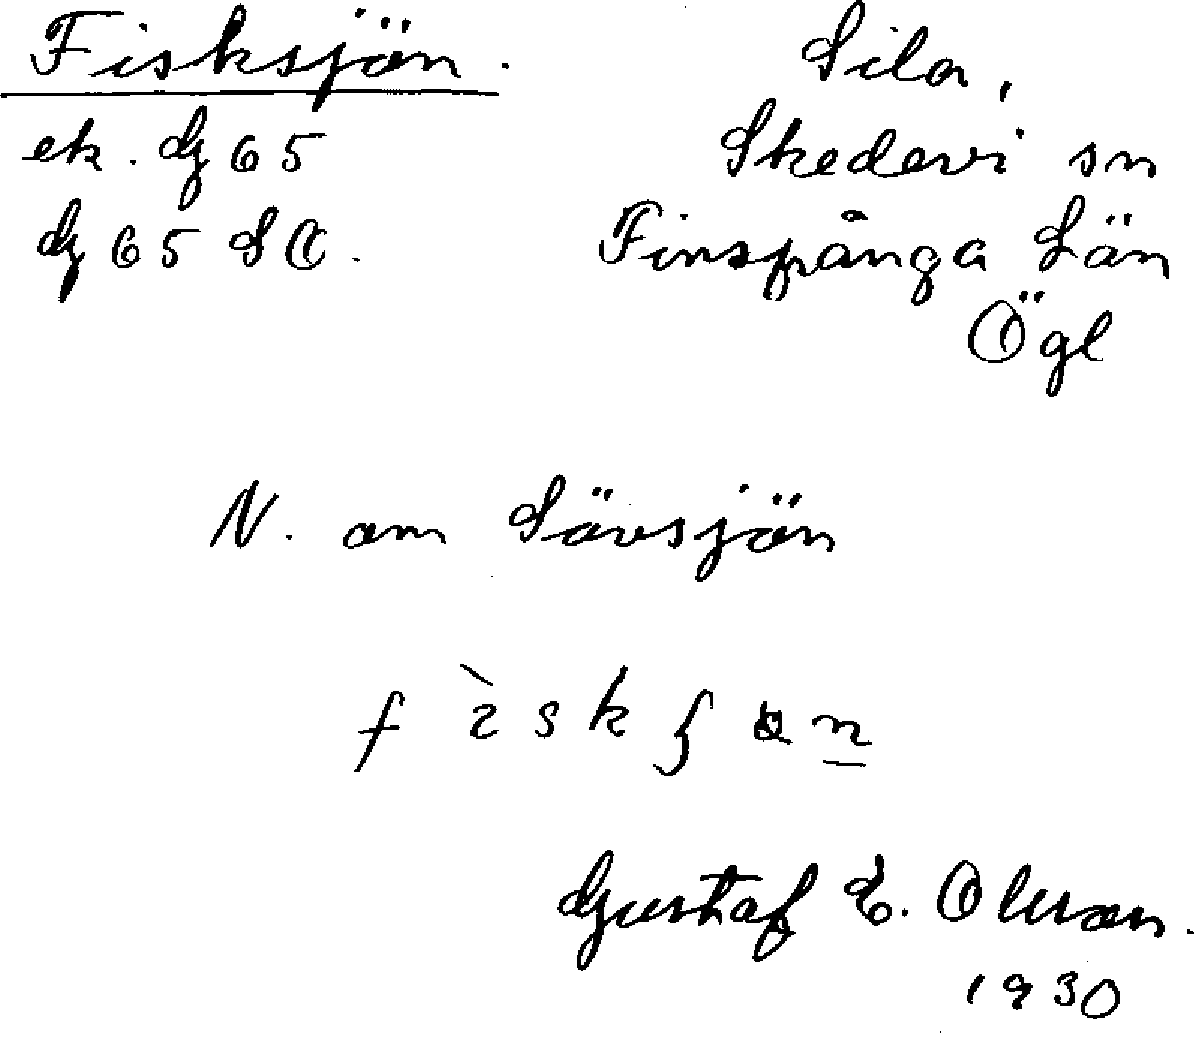 Fisksjön.
ek. G 65
G 65 SO.
Sila,
Skedevi sn
Finspånga Län
Ögl
N. om Sävsjön
Gustaf E. Olsson.
1930